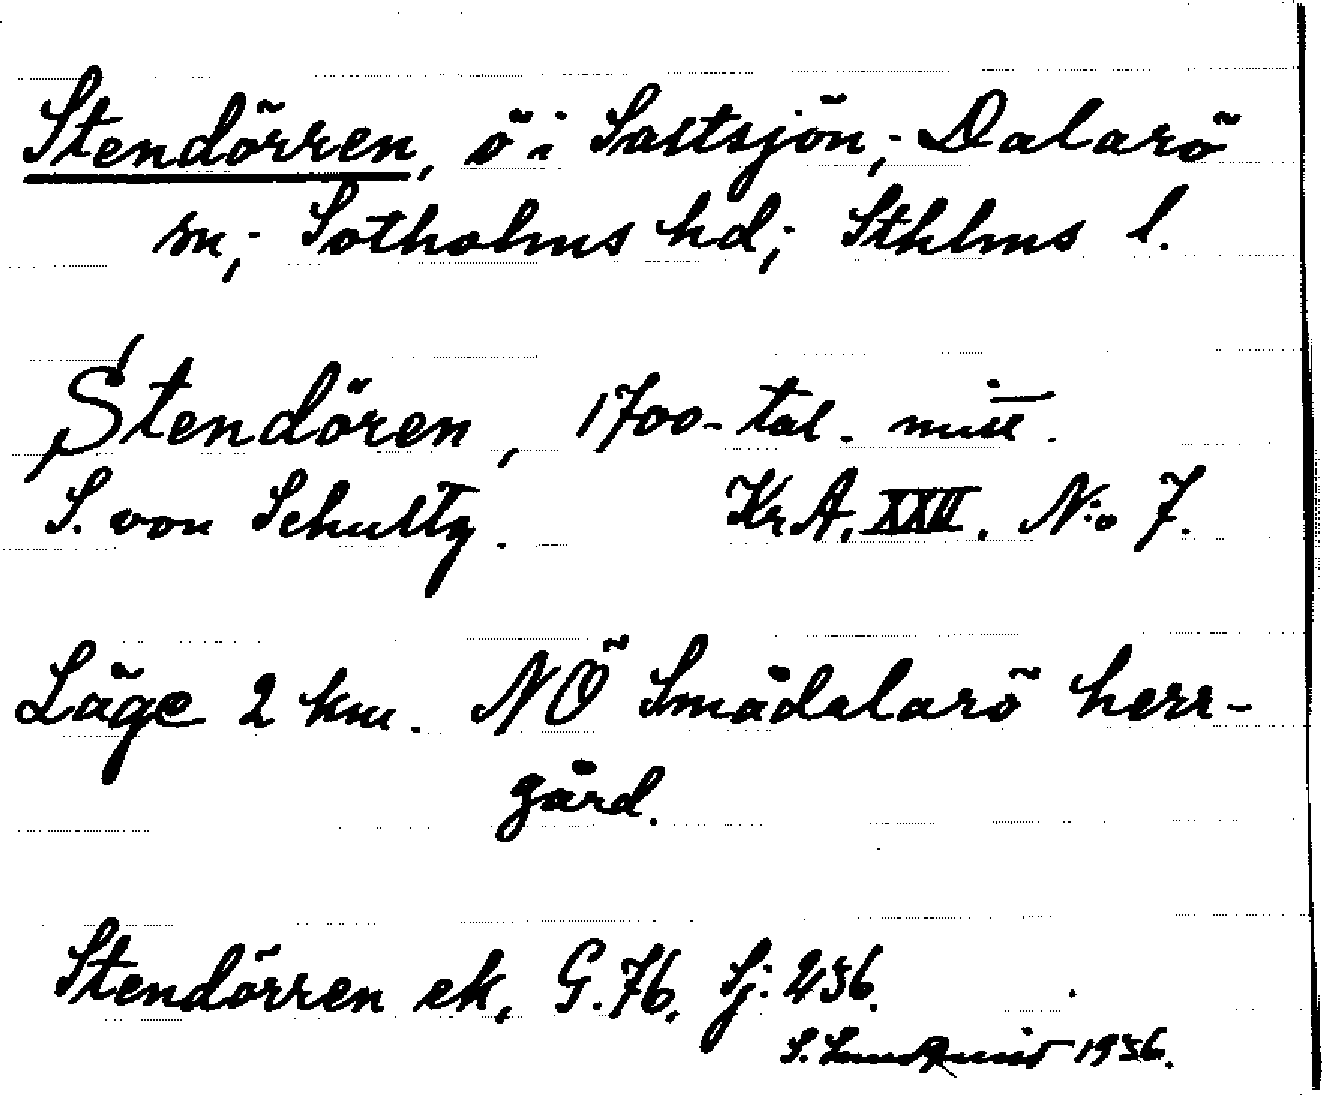 Stendörren, ö i Saltsjön; Dalarö
sn; Sotholms hd; Sthlms l.
Stendören, 1700-tal. mitt.
S. von Schultz. Kr.A. XXII. N:o 7.
Läge 2 km. NÖ Smådalarö herr-
gård.
Stendörren ek. G. 76. Sj: 236.
S. 1936.